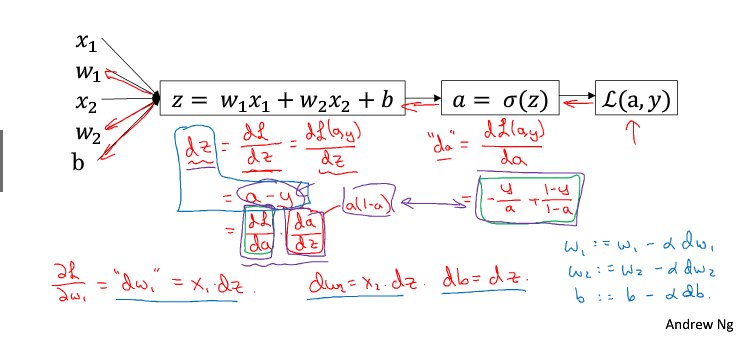 x₁
w₁
x₂
w₂
b
z = w₁x₁ + w₂x₂ + b
a = σ(z)
ℒ(a, y)
dz = dℒ/dz = dℒ(a,y)/dz
= a - y
= dℒ/da · da/dz
a(1-a)
"da" = dℒ(a,y)/da
= -y/a + 1-y/1-a
∂ℒ/∂w₁ = "dw₁" = x₁·dz.
dw₂ = x₂·dz.
db = dz.
w₁ := w₁ - α dw₁
w₂ := w₂ - α dw₂
b := b - α db.
Andrew Ng